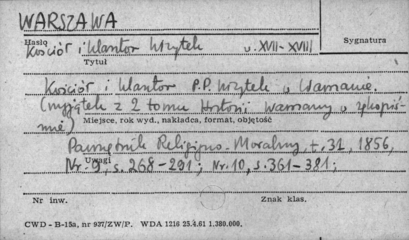 WARSZAWA
Hasło
Kościół i klasztor Wizytek w. XVII-XVIII
Sygnatura
Tytuł
Kościół i klasztor P.P. Wizytek w Warszawie.
(wyjątek z 2 tomu Historii Warszawy w rękopiś-
mie)
Miejsce, rok wyd., nakładca, format, objętość
Pamiętnik Religijno-Moralny, t. 31, 1856,
Nr. 9, s. 268-291; Nr. 10, s. 361-381;
Uwagi
Nr inw.
Znak klas.
CWD - B-15a, nr 937/ZW/P. WDA 1216 25.4.61 1.380.000.